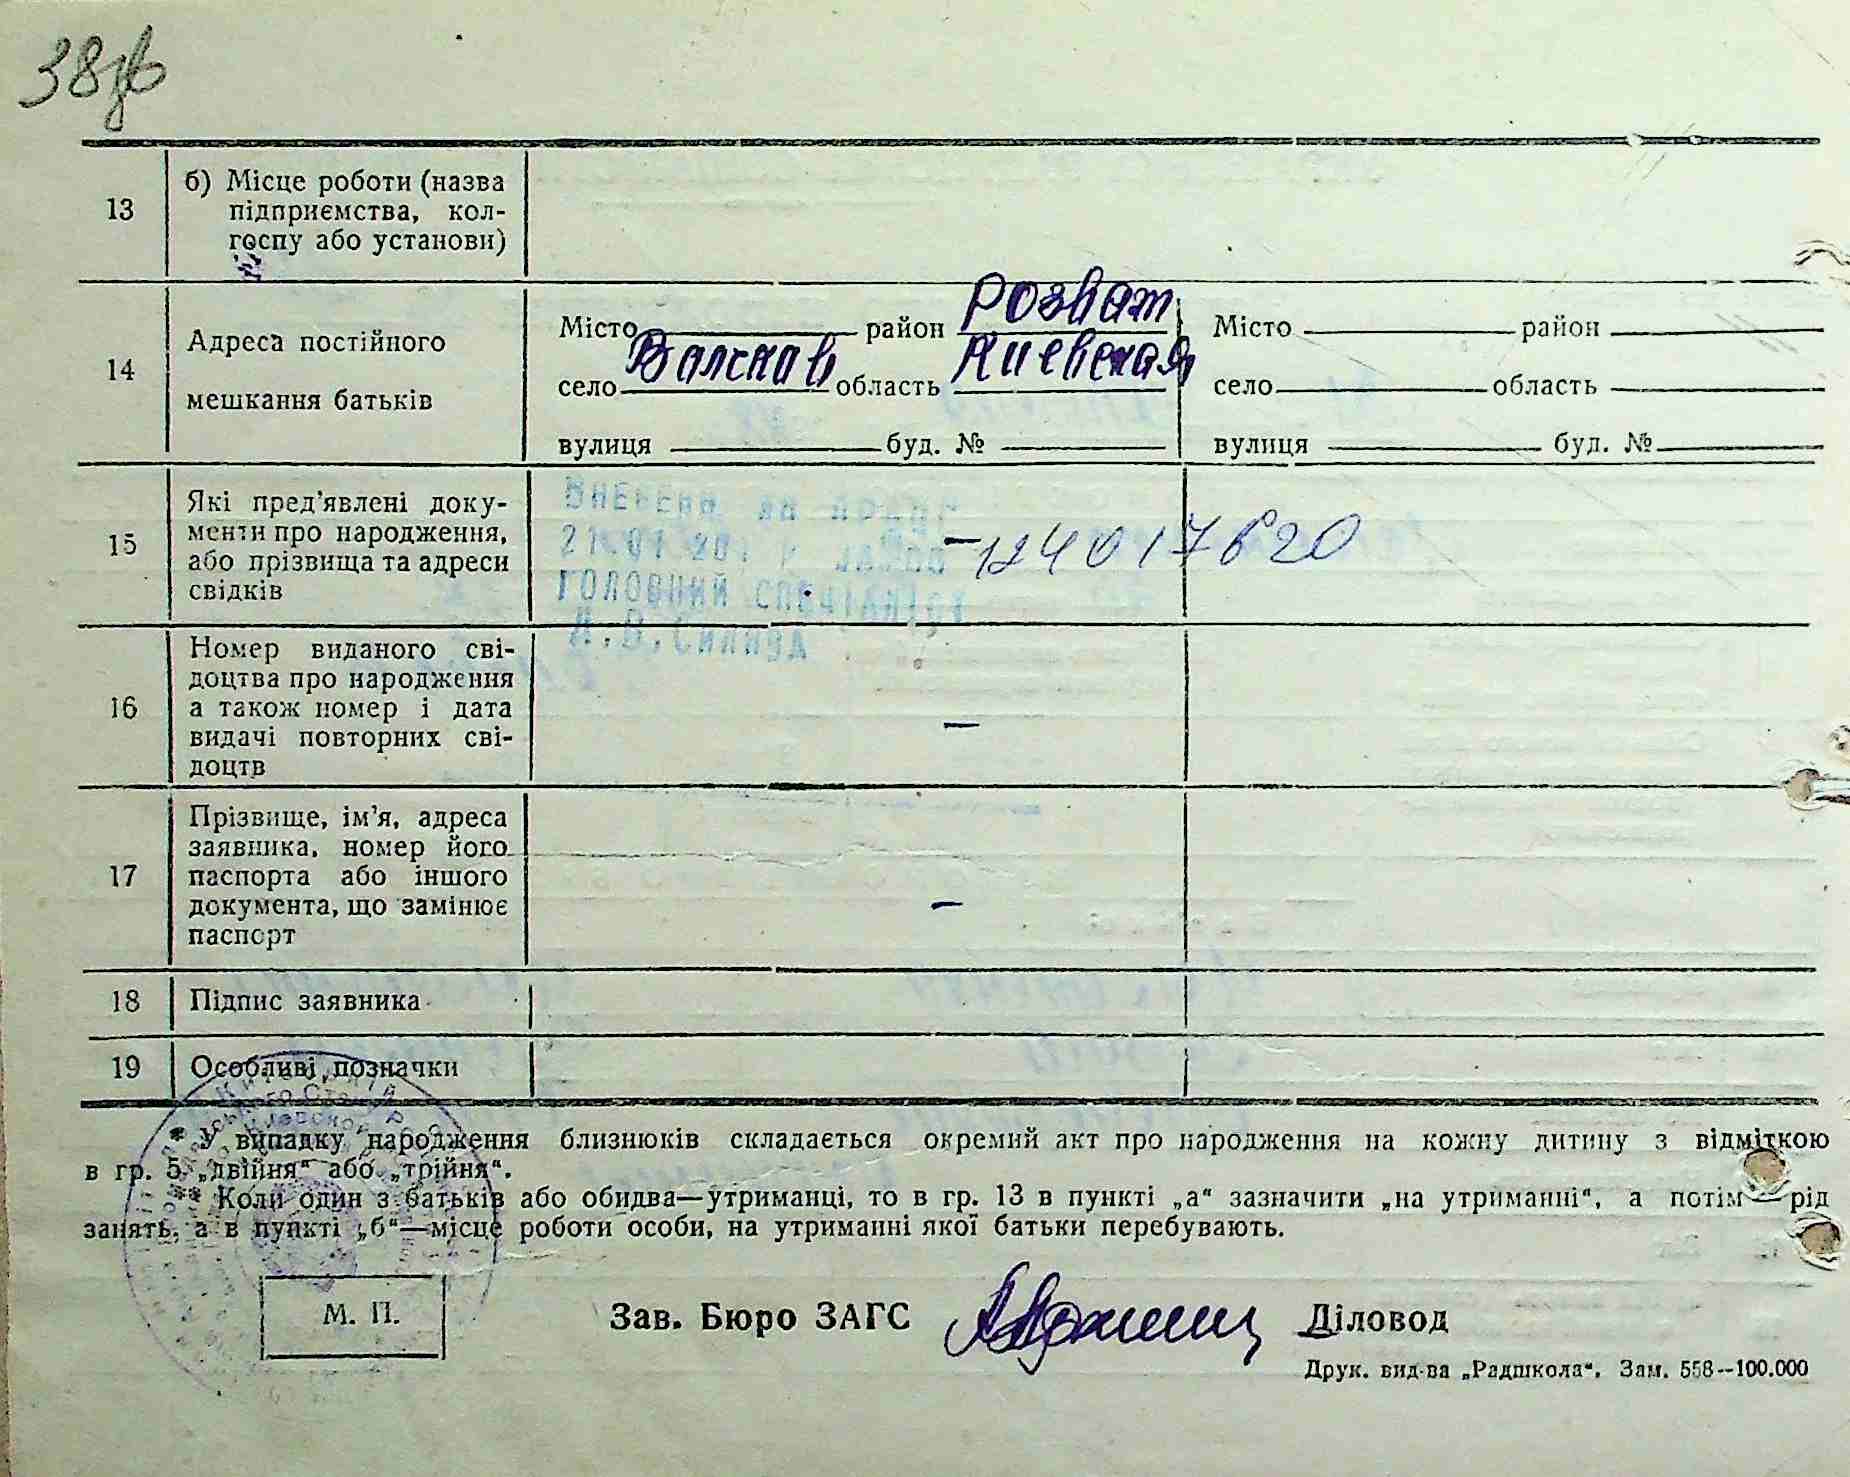 38зв
13
б) Місце роботи (назва
підприємства, кол-
госпу або установи)
14
Адреса постійного
мешкання батьків
Місто район Розваж
село область Киевская
вулиця буд. №
Місто район
село область
вулиця буд. №
15
Які пред'явлені доку-
менти про народження,
або прізвища та адреси
свідків
21.01.20
ГОЛОВНИЙ СПЕЦІАЛІСТ
– 124017620
16
Номер виданого сві-
доцтва про народження
а також номер і дата
видачі повторних сві-
доцтв
–
17
Прізвище, ім'я, адреса
заявника, номер його
паспорта або іншого
документа, що замінює
паспорт
–
18
Підпис заявника
19
Особливі позначки
У випадку народження близнюків складається окремий акт про народження на кожну дитину з відміткою
в гр. 5 „двійня“ або „трійня“.
Коли один з батьків або обидва—утриманці, то в гр. 13 в пункті „а“ зазначити „на утриманні“, а потім—рід
занять, а в пункті „б“—місце роботи особи, на утриманні якої батьки перебувають.
М. П.
Зав. Бюро ЗАГС
Діловод
Друк. вид-ва „Радшкола“. Зам. 558—100.000